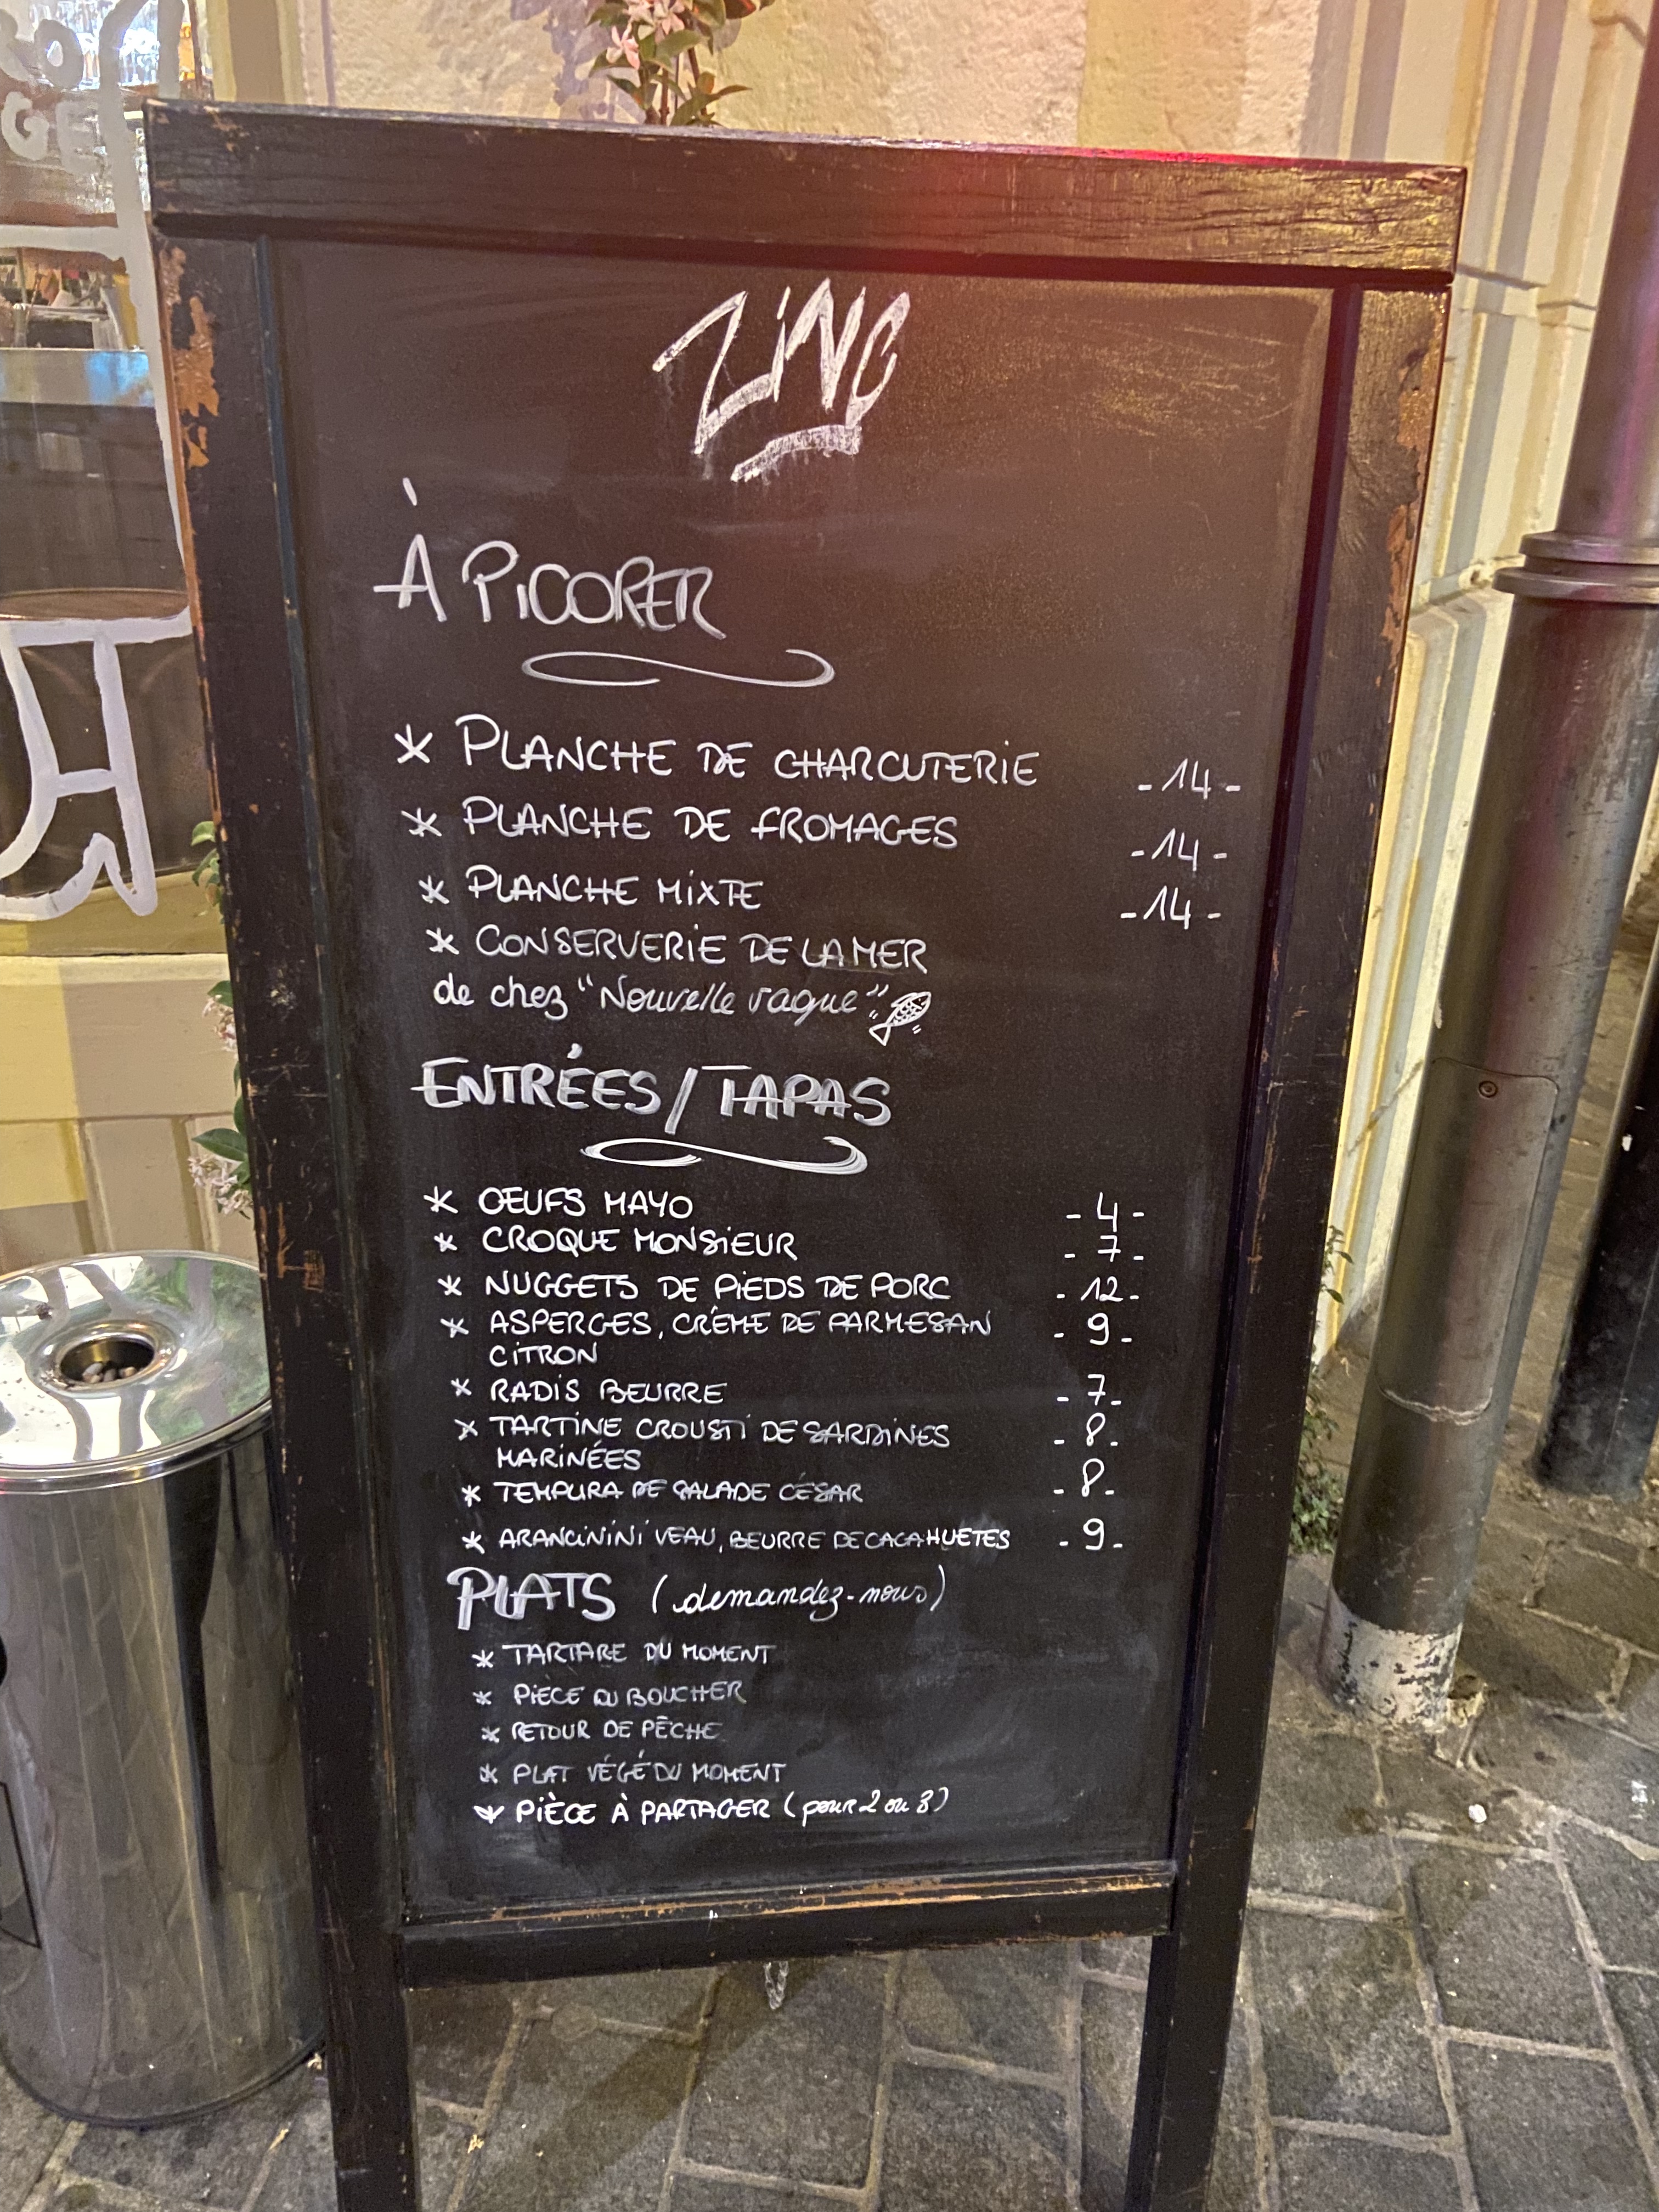 ZINC
À PICORER
* PLANCHE DE CHARCUTERIE -14-
* PLANCHE DE FROMAGES -14-
* PLANCHE MIXTE -14-
* CONSERVERIE DE LA MER
de chez "Nouvelle vague"
ENTRÉES / TAPAS
* OEUFS MAYO -4-
* CROQUE MONSIEUR -7-
* NUGGETS DE PIEDS DE PORC -12-
* ASPERGES, CRÈME DE PARMESAN -9-
CITRON
* RADIS BEURRE -7-
* TARTINE CROUSTI DE SARDINES -8-
MARINÉES
* TEMPURA DE SALADE CÉSAR -8-
* ARANCININI VEAU, BEURRE DE CACAHUETES -9-
PLATS (demandez-nous)
* TARTARE DU MOMENT
* PIÈCE DU BOUCHER
* RETOUR DE PÊCHE
* PLAT VÉGÉ DU MOMENT
* PIÈCE À PARTAGER (pour 2 ou 3)